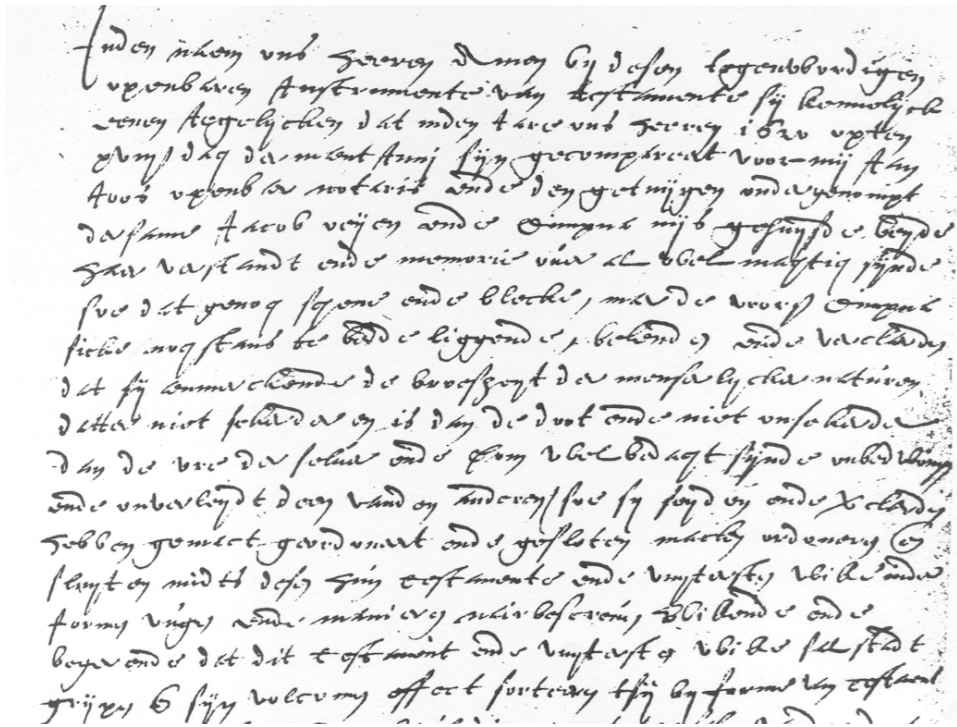 Inden naem ons heeren Amen bij desen tegenwordigen
openbaren Instrumente van testamente sij kennelijck
eenen iegelijcken dat inden iare ons heeren 1620 opten
xviij dag der maent Junij sijn gecompareert voor mij Jan
Joos openbaer notaris ende den getuijgen ondergenompt
dersame Jacob ende Dimpna nijs gehuijsde beijde
haer verstandt ende memorie over al wel magtig sijnde
soe dat genog schene ende blecke, mar de voors Dimpna
sieke nogtans te bedde liggende, bekenden ende verclarden
dat sij aenmerckende de broesheijt der menselijcker naturen
datter niet sekerder en is dan de doot ende niet onsekerder
dan de ure der selver ende hom wel bedagt sijnde onbedwongen
ende onverleijdt deen vanden anderen soe sij seijden ende verclarden
hebben gemact geordonert ende gesloten maken ordoneren en
sluijten midts desen hun testamente ende uuijtersten wille inder
formen vuegen ende manieren naerbescreven willende ende
begerende dat dit testament ende uuijtersten wille sal stadt
grijpen sijn volcomen effect sorteren tsij bij forme van testament